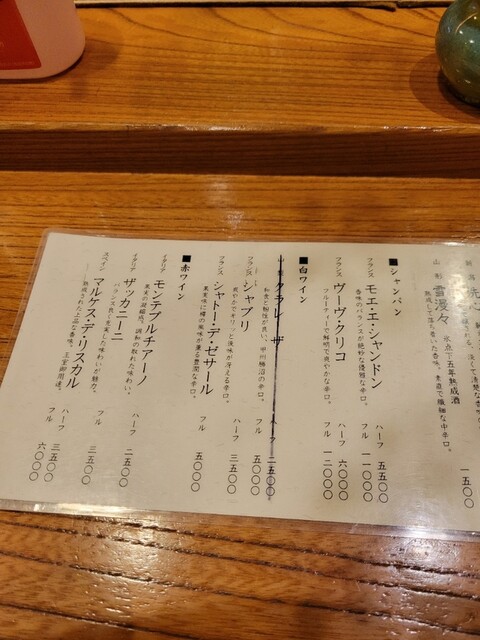 山形 雪漫々 氷点下五年熟成酒
熟成して落ち着いた香味。素直で繊細な中辛口。
一五〇〇
■シャンパン
フランス モエ・エ・シャンドン ハーフ 五五〇〇
香味のバランスが絶妙な優雅な辛口。 フル 一一〇〇〇
フランス ヴーヴ・クリコ ハーフ 六〇〇〇
フルーティーで鮮明で爽やかな辛口。 フル 一二〇〇〇
■白ワイン
和食と相性が良い、甲州勝沼の辛口。
フランス シャブリ フル 五〇〇〇
爽やかでキリッと後味が冴える辛口。 ハーフ 三五〇〇
フランス シャトー・デ・ゼサール
果実味に樽の風味が薫る豊潤な辛口。 フル 五〇〇〇
■赤ワイン
イタリア モンテプルチアーノ
果実の凝縮感。調和の取れた味わい。 ハーフ 二五〇〇
イタリア ザッカニーニ
バランス良く充実した味わいが魅力。 フル 三五〇〇
スペイン マルケス・デ・リスカル ハーフ 三五〇〇
熟成された上品な香味。王室御用達。 フル 六〇〇〇